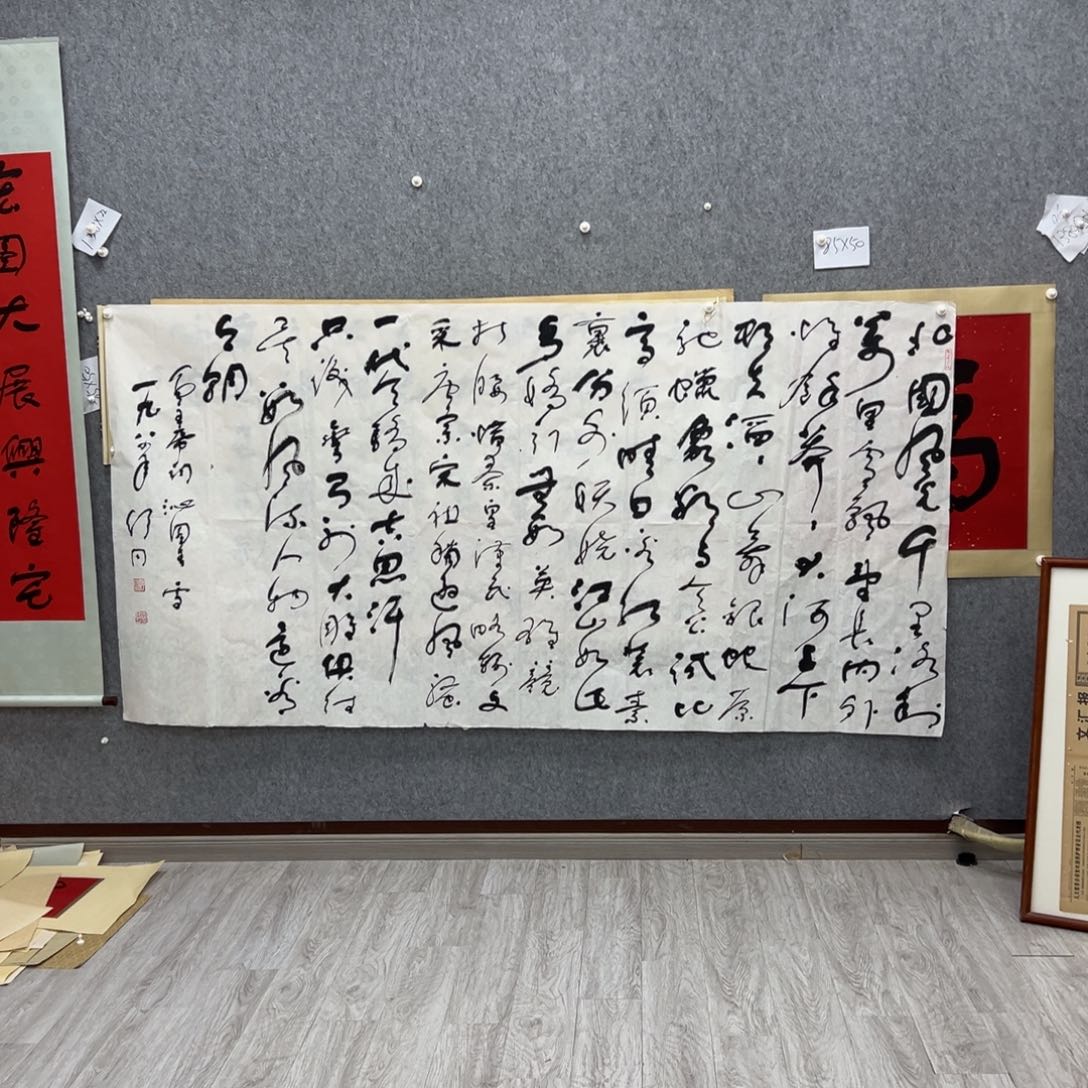 北國風光千里冰封
萬里雪飄望長内外
惟餘莽莽大河上下
頓失滔滔山舞銀蛇原
馳蠟象欲与天公試比
高須晴日看红裝素
裹分外妖嬈江山如此
多嬌引無数英雄競
折腰惜秦皇漢武略輸文
采唐宗宋祖稍遜風騷
一代天驕成吉思汗
只識彎弓射大雕俱往
矣数風流人物還看
今朝
毛主席词沁園春雪
一九八年 舒同
圖大展興隆宅
85X50
文汇报